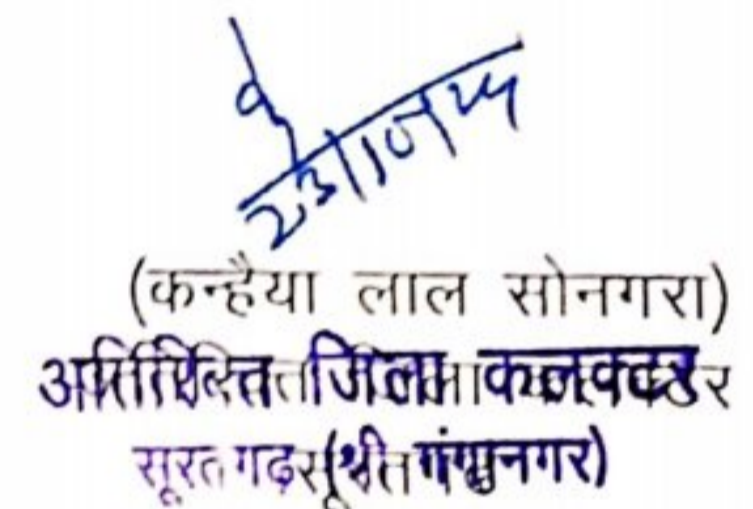 23/10/24
(कन्हैया लाल सोनगरा)
अतिरिक्त जिला कलक्टर
सूरतगढ़ (श्री गंगानगर)